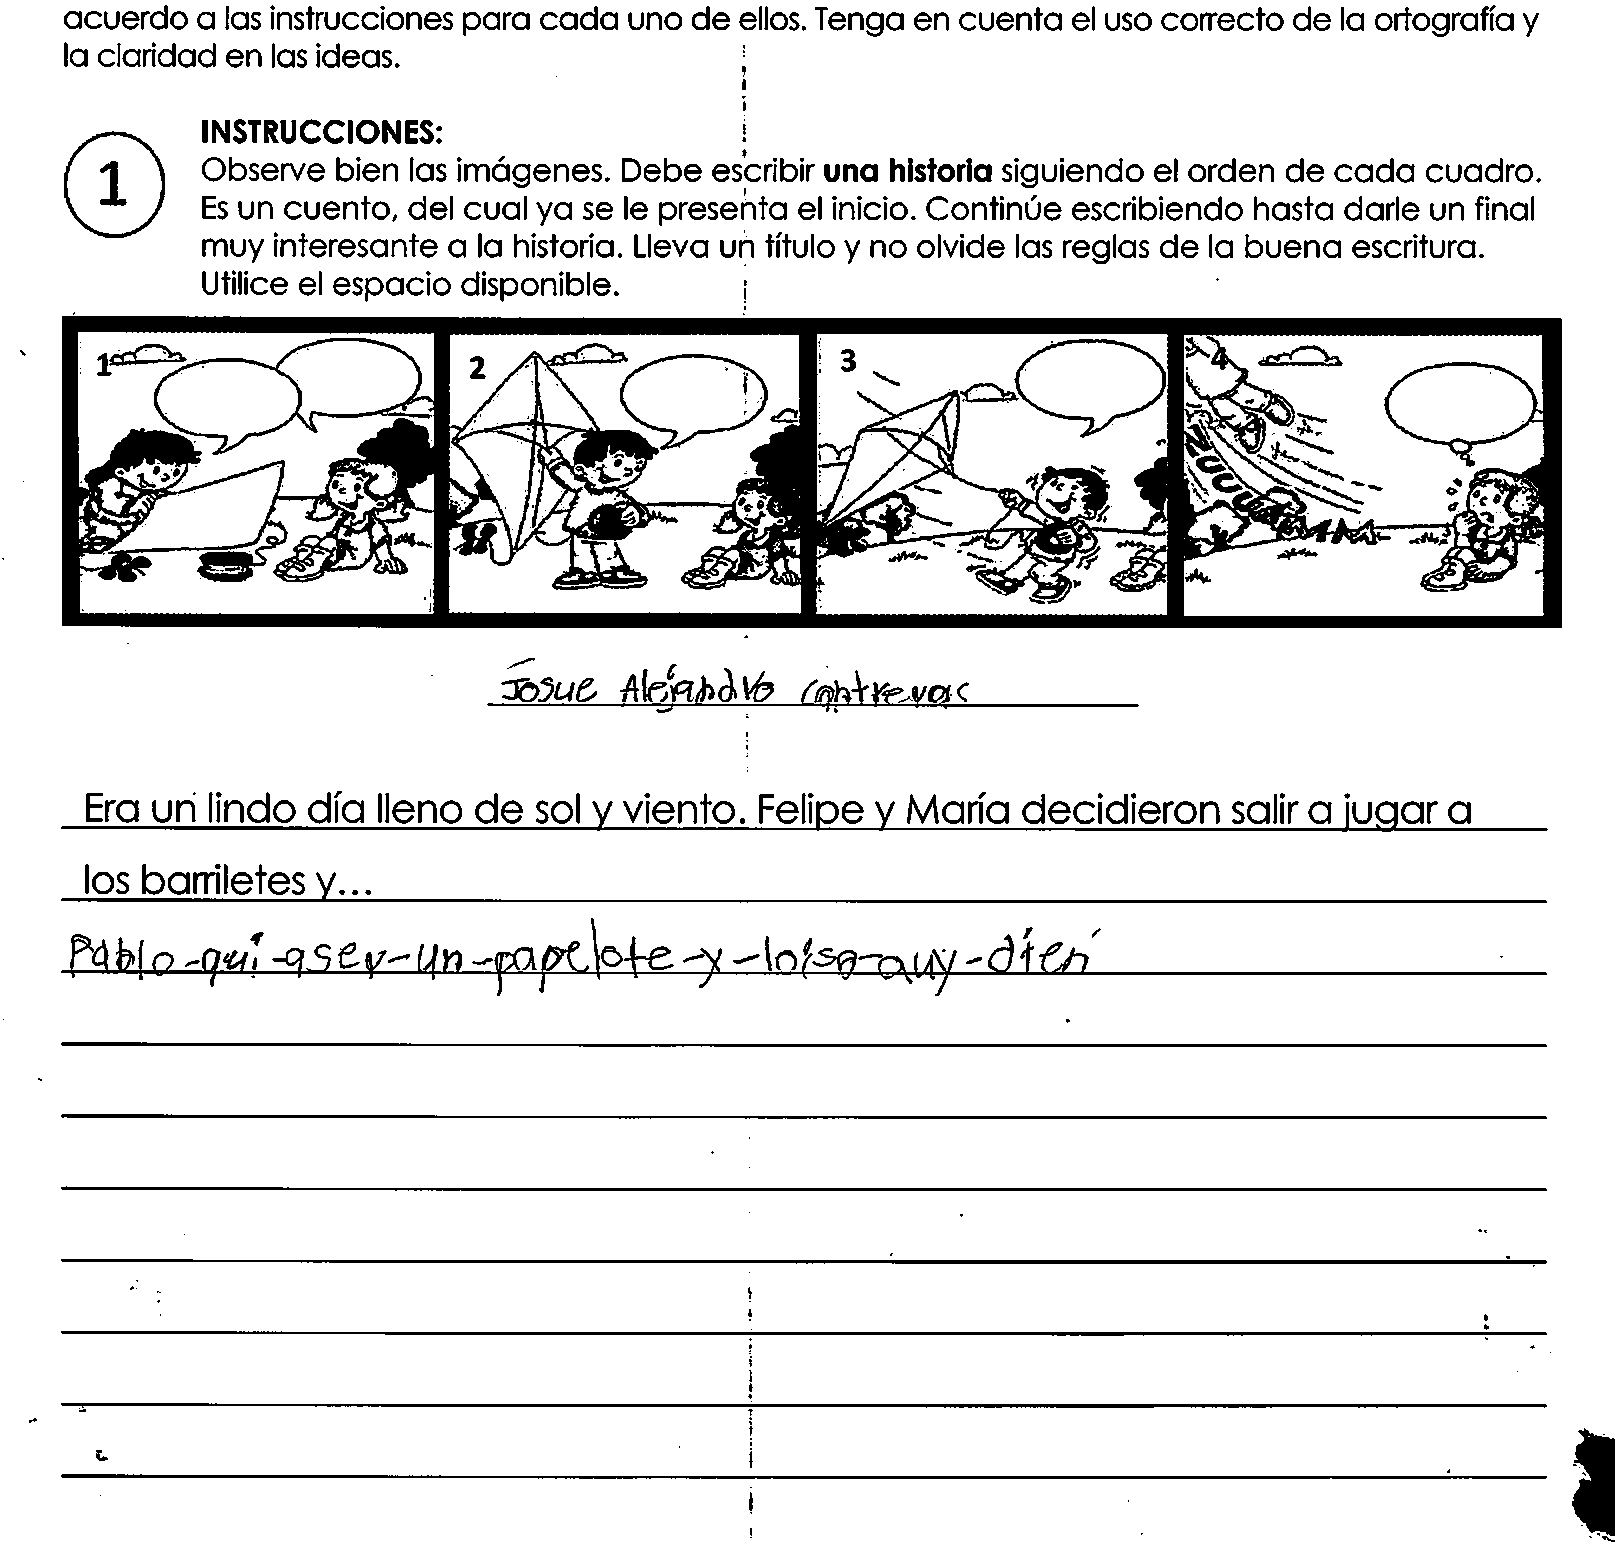 acuerdo a las instrucciones para cada uno de ellos. Tenga en cuenta el uso correcto de la ortografía y
la claridad en las ideas.
1
INSTRUCCIONES:
Observe bien las imágenes. Debe escribir una historia siguiendo el orden de cada cuadro.
Es un cuento, del cual ya se le presenta el inicio. Continúe escribiendo hasta darle un final
muy interesante a la historia. Lleva un título y no olvide las reglas de la buena escritura.
Utilice el espacio disponible.
1 2 3 4
Josue Alejandro Contreras
Era un lindo día lleno de sol y viento. Felipe y María decidieron salir a jugar a
los barriletes y...
Pablo-qui-aser-un-papelote-y-loiso-auy-dien